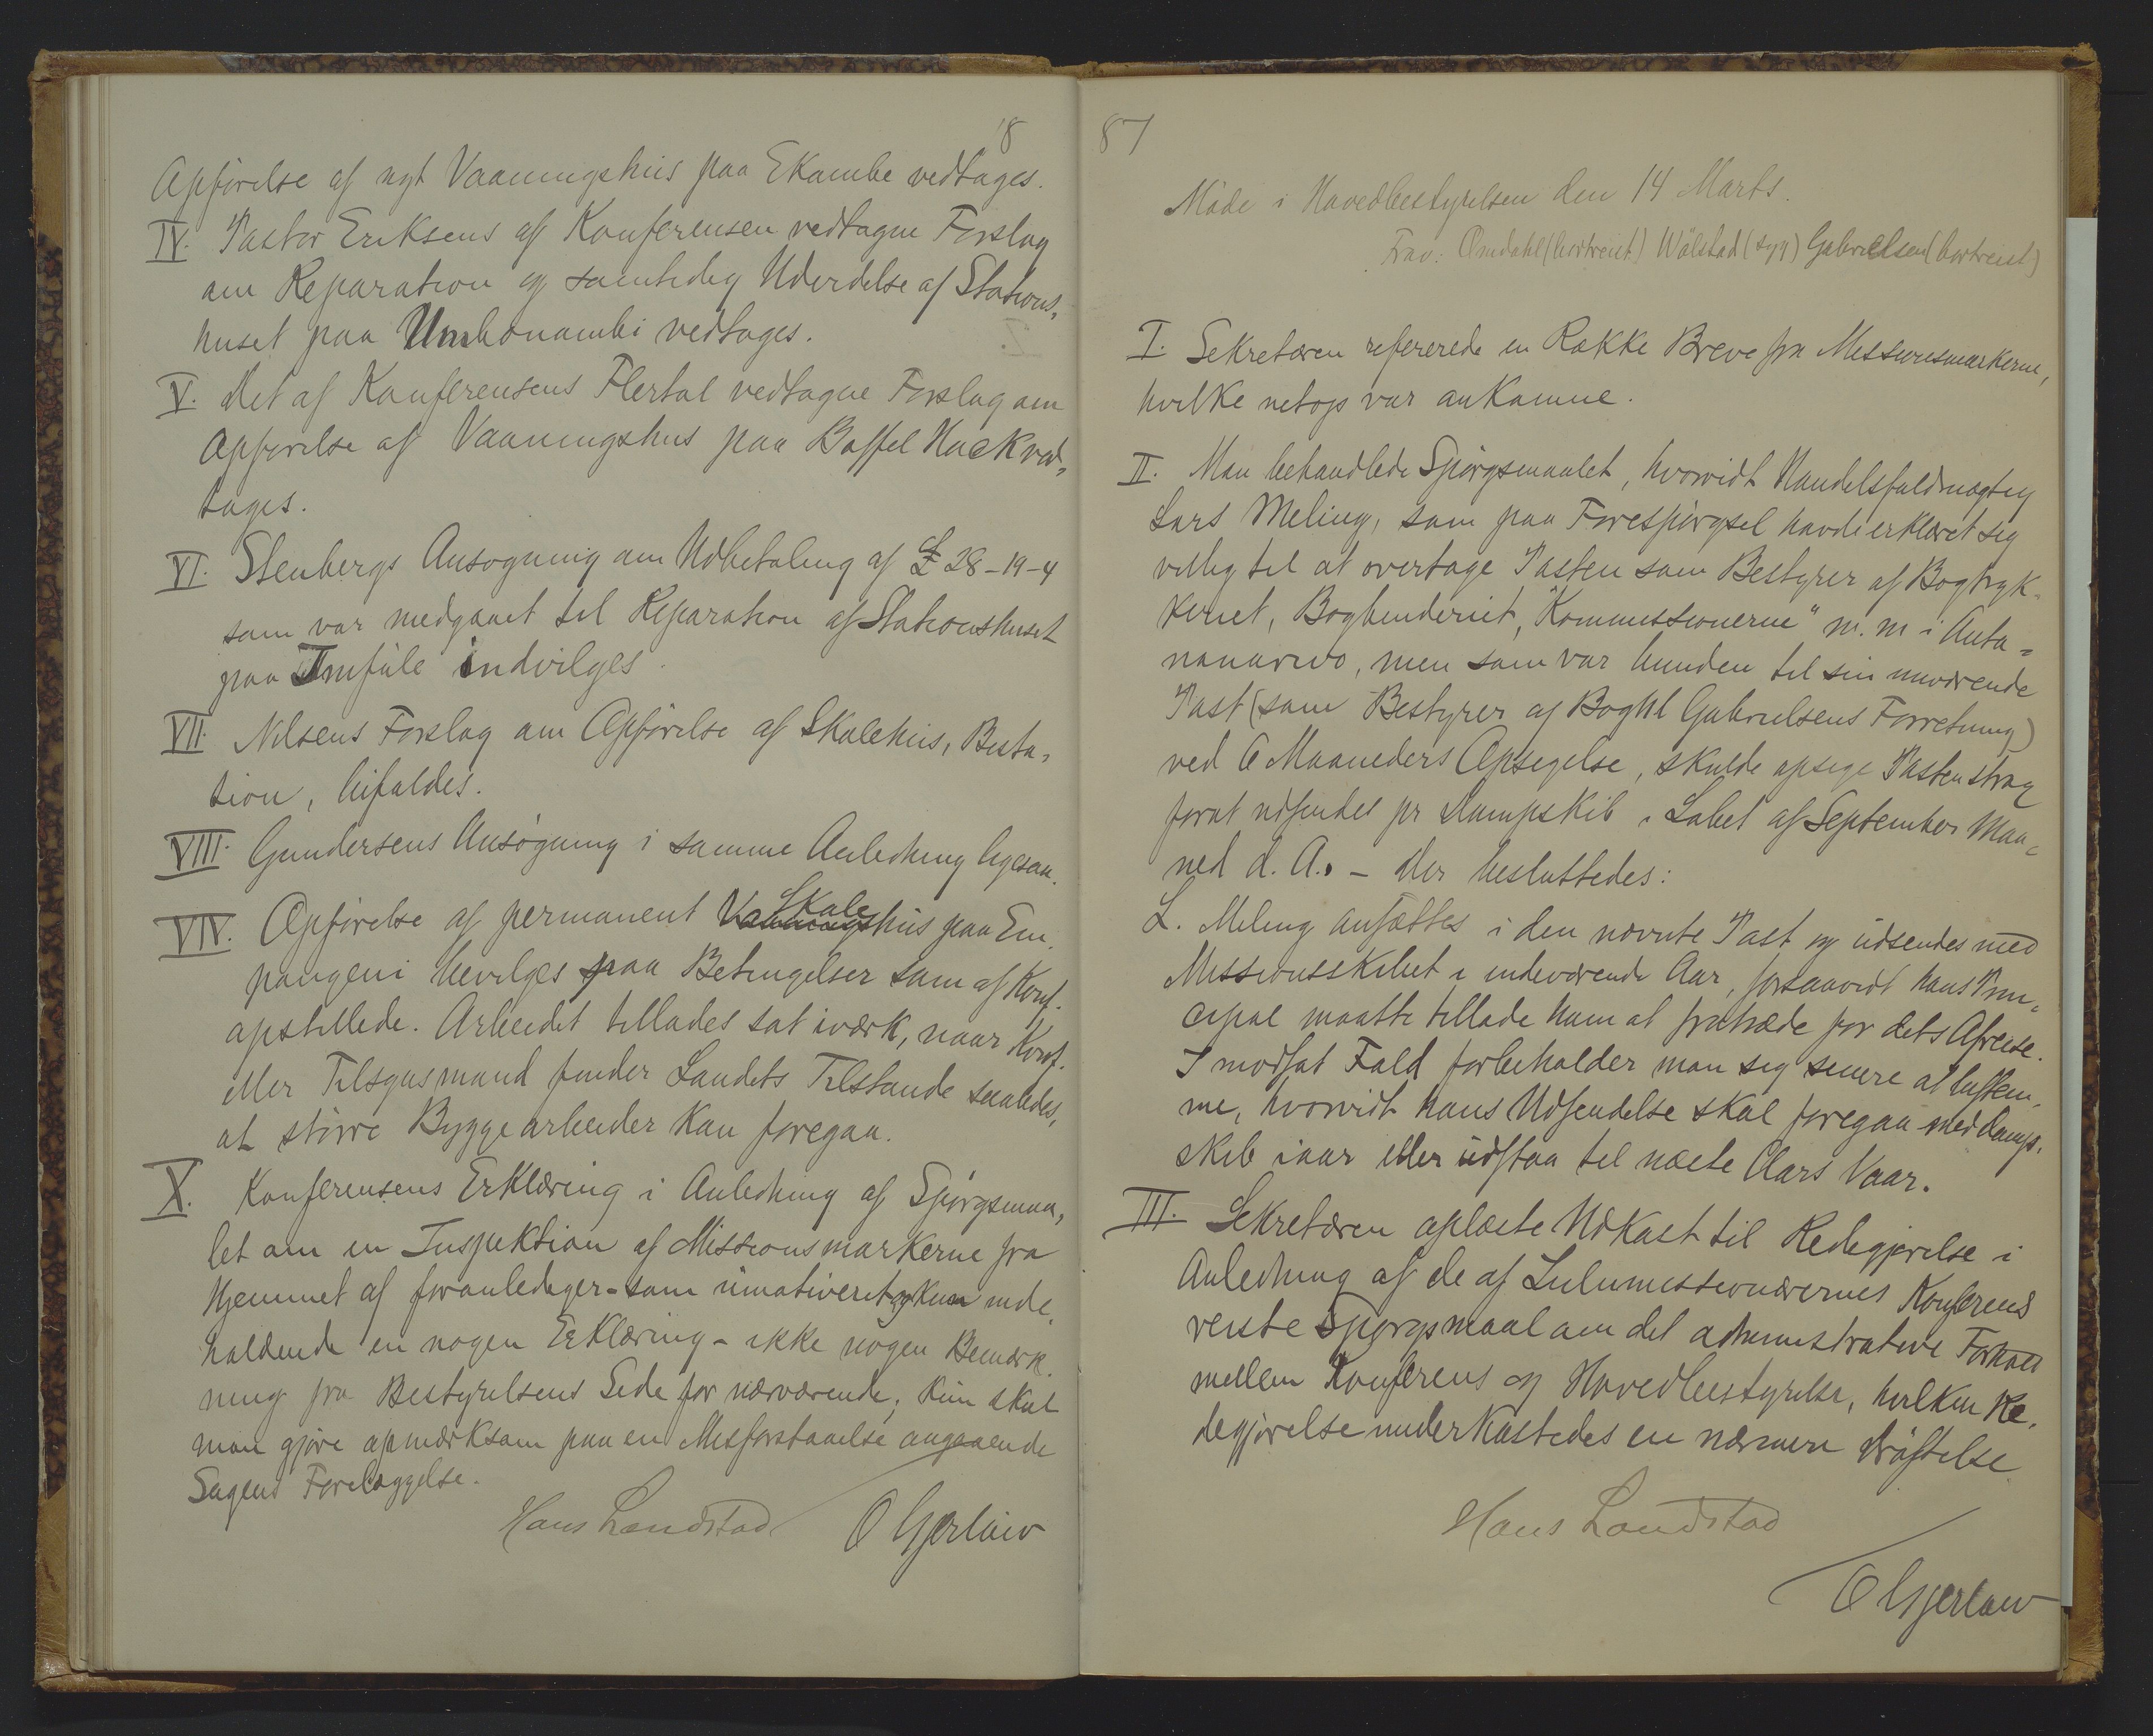 18
Opførelse af nyt Vaaningshus paa Ekombe vedtages.
IV. Pastor Eriksens af Konferensen vedtagne Forslag
om Reparation og samtidig Udvidelse af Stations-
huset paa Umbonambi vedtages.
V. Det af Konferensens Flertal vedtagne Forslag om
Opførelse af Vaaningshus paa Boffel Hoek ved-
tages.
VI. Stenbergs Ansøgning om Udbetaling af £ 28-19-4
som var medgaaet til Reparation af Stationshuset
paa Imfule indvilges.
VII. Nilsens Forslag om Opførelse af Skolehus, Bista-
tion, bifaldes.
VIII. Gundersens Ansøgning i samme Anledning ligesaa.
VIV. Opførelse af permanent Skolehus paa Em-
pangeni bevilges paa Betingelser som af Konf.
opstillede. Arbeidet tillades sat iværk, naar Konf.
eller Tilsynsmand finder Landets Tilstande saaledes,
at større Byggearbeider kan foregaa.
X. Konferensens Erklæring i Anledning af Spørgsmaa-
let om en Inspektion af Missionsmarkerne fra
Hjemmet af foranlediger - som umotiveret og kun inde-
holdende en nøgen Erklæring - ikke nogen Bemærk-
ning fra Bestyrelsens Side for nærværende; kun skal
man gjøre opmærksom paa en Misforstaaelse angaaende
Sagens Forelæggelse.
Hans Landstad O Gjerløw
87
Møde i Hovedbestyrelsen den 14 Marts.
Frav: Omdahl (bortreist) Wålstad (syg) Gabrielsen (bortreist)
I. Sekretæren refererede en Række Breve fra Missionsmarkerne,
hvilke netop var ankomne.
II. Man behandlede Spørgsmaalet, hvorvidt Handelsfuldmægtig
Lars Meling, som paa Forespørgsel havde erklæret sig
villig til at overtage Posten som Bestyrer af Bogtryk-
keriet, Bogbinderiet, "Kommissionerne" m. m i Anta-
nanarivo, men som var bunden til sin nuværende
Post (som Bestyrer af Boghl Gabrielsens Forretning)
ved 6 Maaneders Opsigelse, skulde opsige Posten strax
forat udsendes pr Dampskib i Løbet af September Maa-
ned d. A. - Der besluttedes:
L. Meling ansættes i den nævnte Post og udsendes med
Missionsskibet i indeværende Aar, forsaavidt hans Prin-
cipal maatte tillade ham at fratræde før dets Afreise.
I modsat Fald forbeholder man sig senere at bestem-
me, hvorvidt hans Udsendelse skal foregaa med Damp-
skib iaar eller udstaa til næste Aars Vaar.
III. Sekretæren oplæste Udkast til Redegjørelse i
Anledning af de af Zulumissionærernes Konferens
reiste Spørgsmaal om det administrative Forhold
mellem Konferens og Hovedbestyrelse, hvilken Re-
degjørelse underkastedes en nærmere Drøftelse
Hans Landstad
O Gjerløw